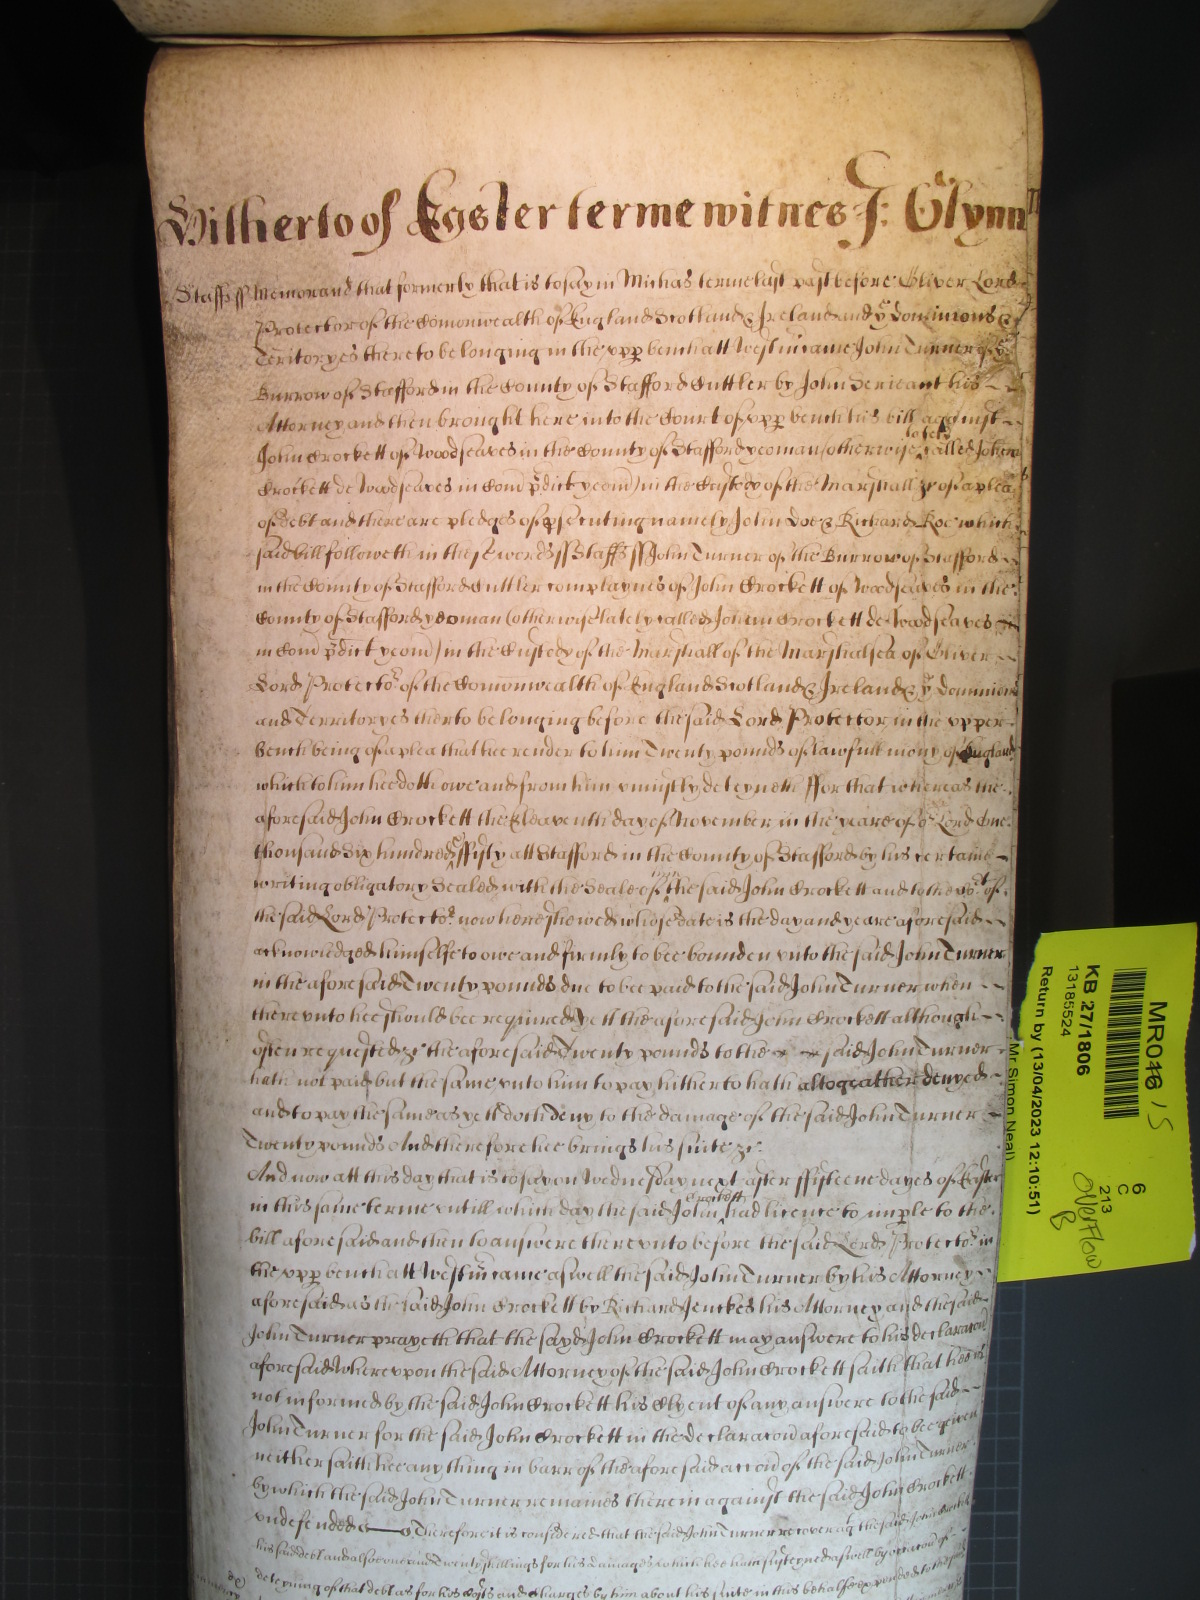 Hitherto of Easter terme witnes J: Glynn
Staff ss Memorand that formerly that is to say in Michas terme last past before Oliver Lord
Protector of the Comonwealth of England Scotland & Ireland and ye dominions &
Teritoryes thereto belonging in the vpp bench att Westmr came John Turner of ye
Burrow of Stafford in the County of Stafford Cuttler by John Serieant his
Attorney and then brought here into the Court of vpp bench his bill against
John Crockett of Woodseaves in the County of Stafford yeoman (otherwise lately called Johem
Crockett de Woodseaves in Com pdict yeom) in the Custody of the Marshall &c of a plea
of debt and there are pledges of psecuting namely John Doe & Richard Roe which
said bill followeth in these words ss Staff ss John Turner of the Burrow of Stafford
in the County of Stafford Cuttler complaynes of John Crockett of Woodseaves in the
County of Stafford yeoman (otherwise lately called Johem Crockett de Woodseaves
in Com pdict yeom) in the Custody of the Marshall of the Marshalsea of Oliver
Lord Protector of the Comonwealth of England Scotland & Ireland & ye dominions
and Territoryes therto belonging before the said Lord Protector in the vpper
bench being of a plea that hee render to him Twenty pounds of lawfull mony of England
which to him hee doth owe and from him vniustly deteyneth ffor that whereas the
aforesaid John Crockett the Eleaventh day of November in the yeare of or Lord One
thousand Six hundred & ffifty att Stafford in the County of Stafford by his certaine
writing obligatory Sealed with the Seale of him the said John Crockett and to the Cort of
the said Lord Protector now here shewed whose date is the day and yeare aforesaid
acknowledged himselfe to owe and firmly to bee bounden vnto the said John Turner
in the aforesaid Twenty pounds due to bee paid to the said John Turner when
therevnto hee should bee required Yett the aforesaid John Crockett although
often requested &c the aforesaid Twenty pounds to the said John Turner
hath not paid but the same vnto him to pay hitherto hath altogeather denyed
and to pay the same as yett doth deny to the damage of the said John Turner
Twenty pounds And therefore hee brings his suite &c.
And now att this day that is to say on Wednesday next after ffifteene dayes of Easter
in this same terme vntill which day the said John Crockett had licence to imple to the
bill aforesaid and then to answere therevnto before the said Lord Protector in
the vpp bench att Westmr came aswell the said John Turner by his Attorney
aforesaid as the said John Crockett by Richard Jenckes his Attorney and the said
John Turner prayeth that the sayd John Crockett may answere to his declaracon
aforesaid Wherevpon the said Attorney of the said John Crockett saith that hee is
not informed by the said John Crockett his Clyent of any answere to the said
John Turner for the said John Crockett in the declaracon aforesaid to bee given
neither saith hee any thing in barr of the aforesaid accon of the said John Turner
by which the said John Turner remaines therein against the said John Crockett
vndefended Therefore it is considered that the said John Turner recover agt the said John Crockett
his said debt and alsoe one and Twenty shillings for his damages which hee hath susteyned aswell by occacon of
deteyning of that debt as for his Costs and Charges by him about his suite in this behalfe
MR046 / 5
KB 27/1806
13185524
Return by (13/04/2023 12:10:51)
Mr Simon Neal)
6
C
213
overflow
B